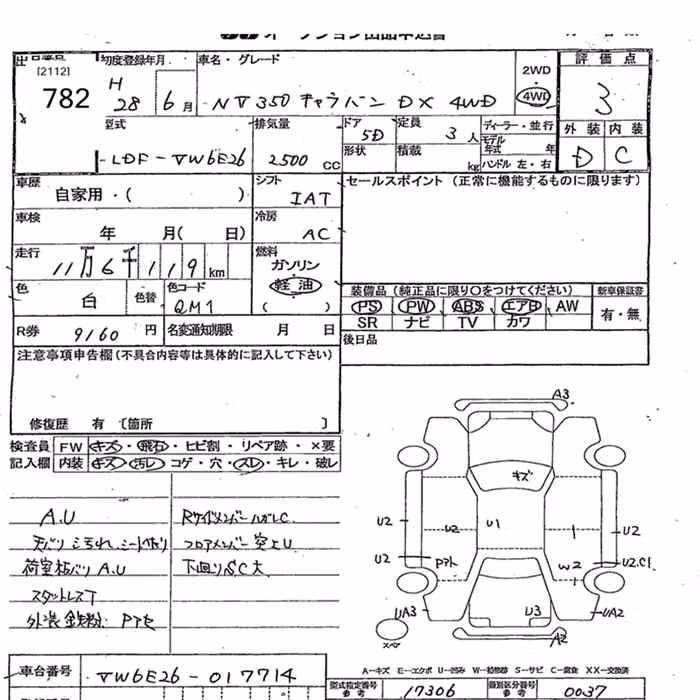 オークション出品申込書
出品番号
[2112]
782
初度登録年月
H 28 6月
車名・グレード
NV350 キャラバン DX 4WD
2WD
・
4WD
評価点
3
型式
LDF-VW6E26
排気量
2500 CC
ドア
5D
定員
3人
ディーラー・並行
モデル年式 年
ハンドル 左・右
形状
積載
kg
外装 内装
D C
車歴
自家用・( )
シフト
IAT
セールスポイント (正常に機能するものに限ります)
車検
年 月( 日)
冷房
AC
走行
11万6千119km
燃料
ガソリン
軽油
( )
色
白
色替
色コード
QM1
装備品 (純正品に限り○をつけてください)
新車保証書
PS PW ABS エアB AW
SR ナビ TV カワ
有・無
R券
9160円
名変通知期限 月 日
後日品
注意事項申告欄 (不具合内容等は具体的に記入して下さい)
修復歴 有 〔箇所 〕
検査員 FW キズ・飛石・ヒビ割・リペア跡・×要
記入欄 内装 キズ・汚レ・コゲ・穴・スレ・キレ・破レ
A.U
荷室板バリ A.U
スタットレスT
外装 鉄粉 Pアセ
Rサイドメンバー ハガレC
フロアメンバー 突上U
下回りS.C大
A3
キズ
U2 U2 U1 1 U2
U2 Pアト W2 U2.C1
UA3 U3 UA2
スペア
A2
A―キズ E―エクボ U―凹み W―補修跡 S―サビ C―腐食 XX―交換済
車台番号
VW6E26-017714
型式指定番号
参考
17306
類別区分番号
参考
0037